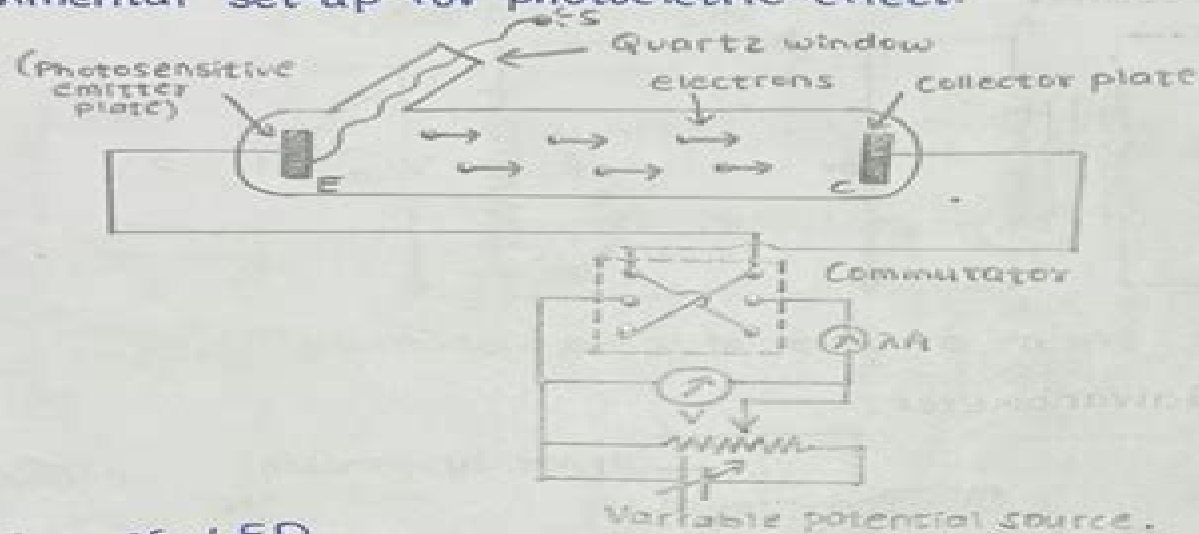 mental set-up for photoelectric effect.
S
Quartz window
(Photosensitive
emitter
plate)
electrons
Collector plate
E
C
Commutator
V
Variable potential source.
LED